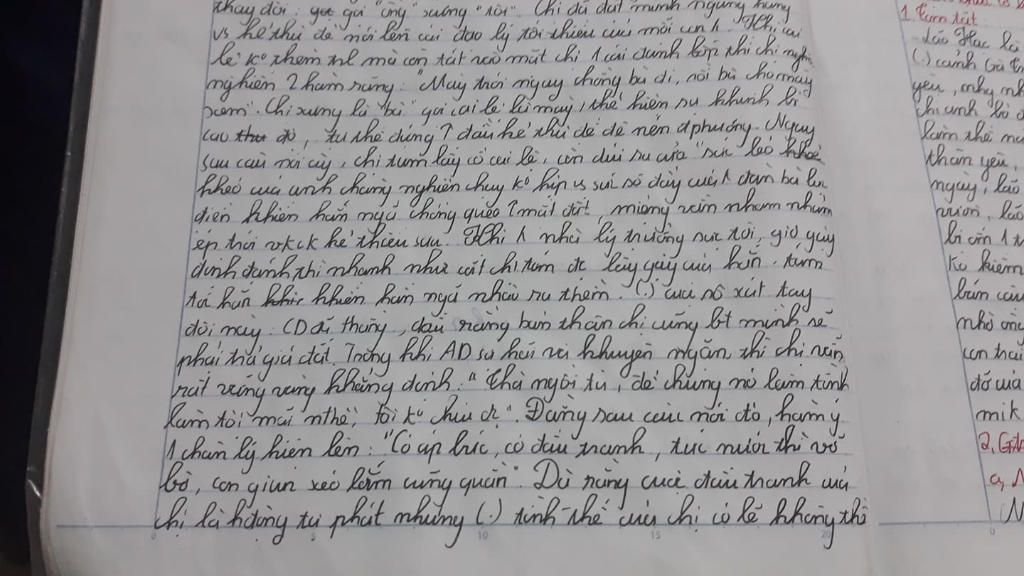 thay đổi: gọi "ông" xưng "tôi". Chị đã đặt mình ngang hàng
vs kẻ thù để nói lên cái đạo lý tối thiểu của mỗi con
lệ k° thèm trl mà còn tát vào mặt chị 1 cái đánh bốp thì chị nghiến
nghiến 2 hàm răng: "Mày trói ngay chồng bà đi, rồi bà cho mày
xem". Chị xưng là "bà" gọi cai lệ là mày, thể hiện sự khinh bỉ
cao độ, tư thế đứng đầu kẻ thù để đè nén đphương. Ngay
sau câu nói ấy, chị túm lấy cổ cai lệ, ấn dúi ra cửa "sức lẻo
khẻo của anh chàng nghiện chạy k° kịp vs sức xô đẩy của đàn bà lực
điền khiến hắn ngã chỏng quèo mặt đất, miệng vẫn nham nhảm
ép trói vkck kẻ thiếu sưu. nhà lý trưởng sực tới, giơ gậy
định đánh thì nhanh như cắt chị túm đc lấy gậy của hắn. túm
tóc hắn khiến hắn ngã nhào ra thềm. (.) cuộc xô xát tay
đôi này: CD đã thắng, dẫu rằng bản thân chị cũng bt mình sẽ
phải trả giá đắt. Trong khi AD sợ hãi và khuyên ngăn thì chị vẫn
rất vững vàng khẳng định: "Thà ngồi tù, để chúng nó làm tình
làm tội mãi nthế, tôi k° chịu đc". Đằng sau câu nói đó, hàm ý
1 chân lý hiện lên: "Có áp lực, có đấu tranh, tức nước thì vỡ
bờ, con giun xéo lắm cũng quằn". Dù rằng cuộc đấu tranh của
chị là hđộng tự phát nhưng (.) tình thế của chị có lẽ không thể
1. Tóm tắt
(.) cảnh
yêu,
chị anh bỏ
làm thế
thân yêu,
ngày, lão
vườn, lão
bị ốm 1
kiếm
bán
nhờ ông
con trai
đó của
mik
2.
a,